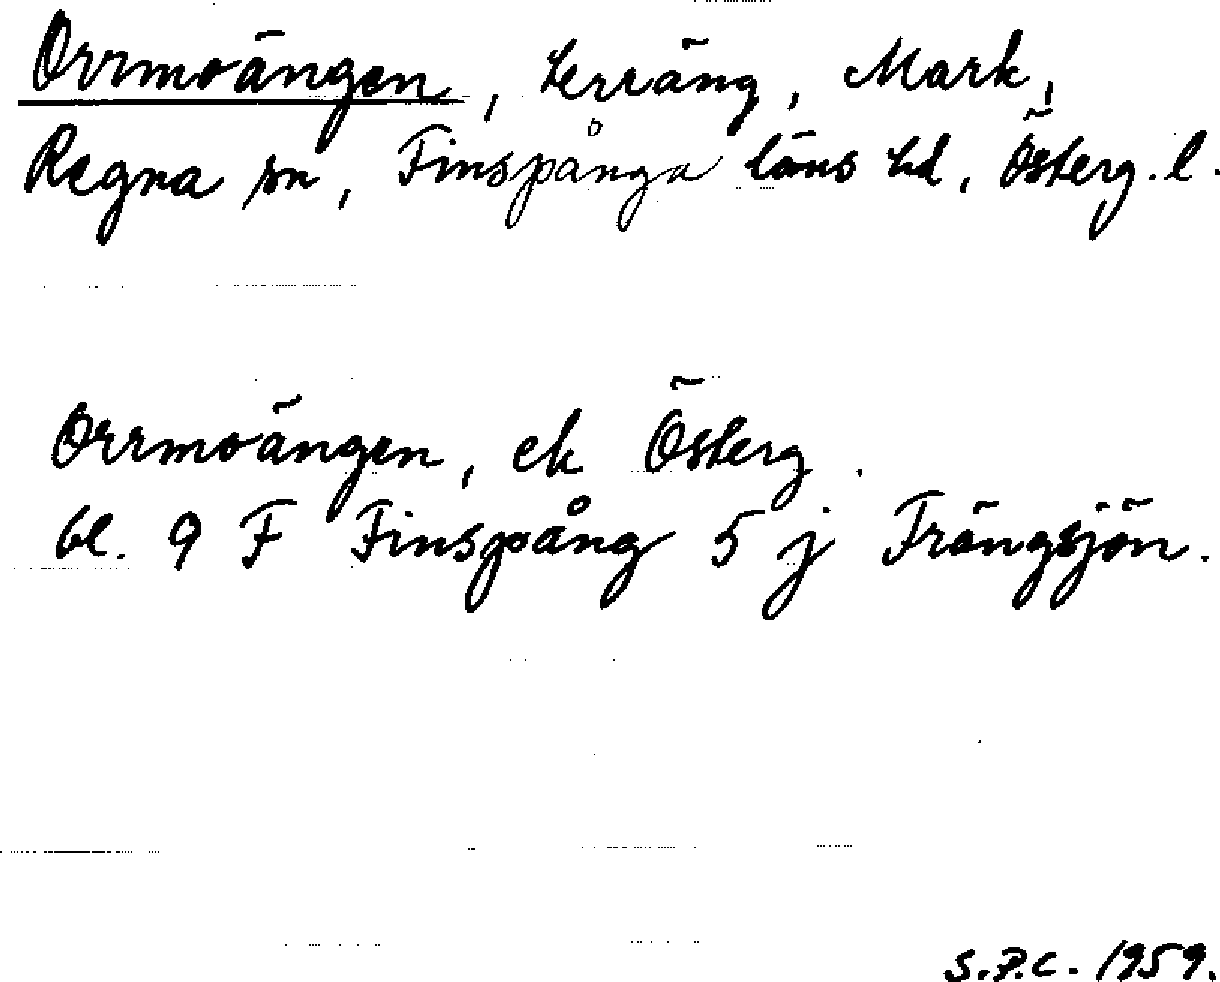 Orrmoängen, terräng, Mark,
Regna sn, Finspånga läns hd, Österg. l.
Orrmoängen, ek Österg.
bl. 9 F Finspång 5 j Trängsjön.
S.P.C. 1959.